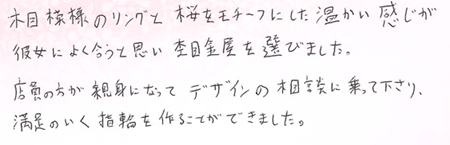 木目模様のリングと 桜をモチーフにした温かい感じが
彼女によく合うと思い 杢目金屋を選びました。
店員の方が親身になって デザインの相談に乗って下さり、
満足のいく指輪を作ることができました。